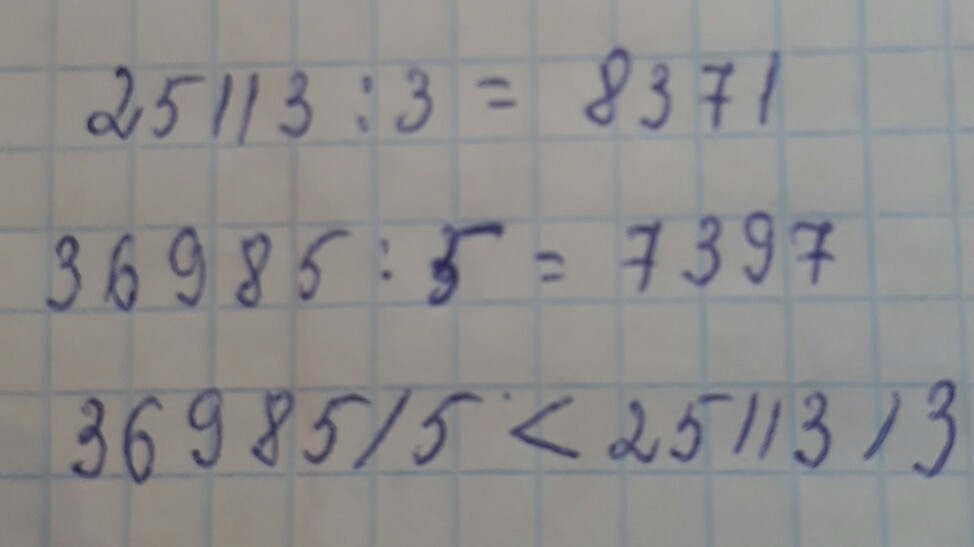 25113 : 3 = 8371
36985 : 5 = 7397
36985/5 < 25113/3